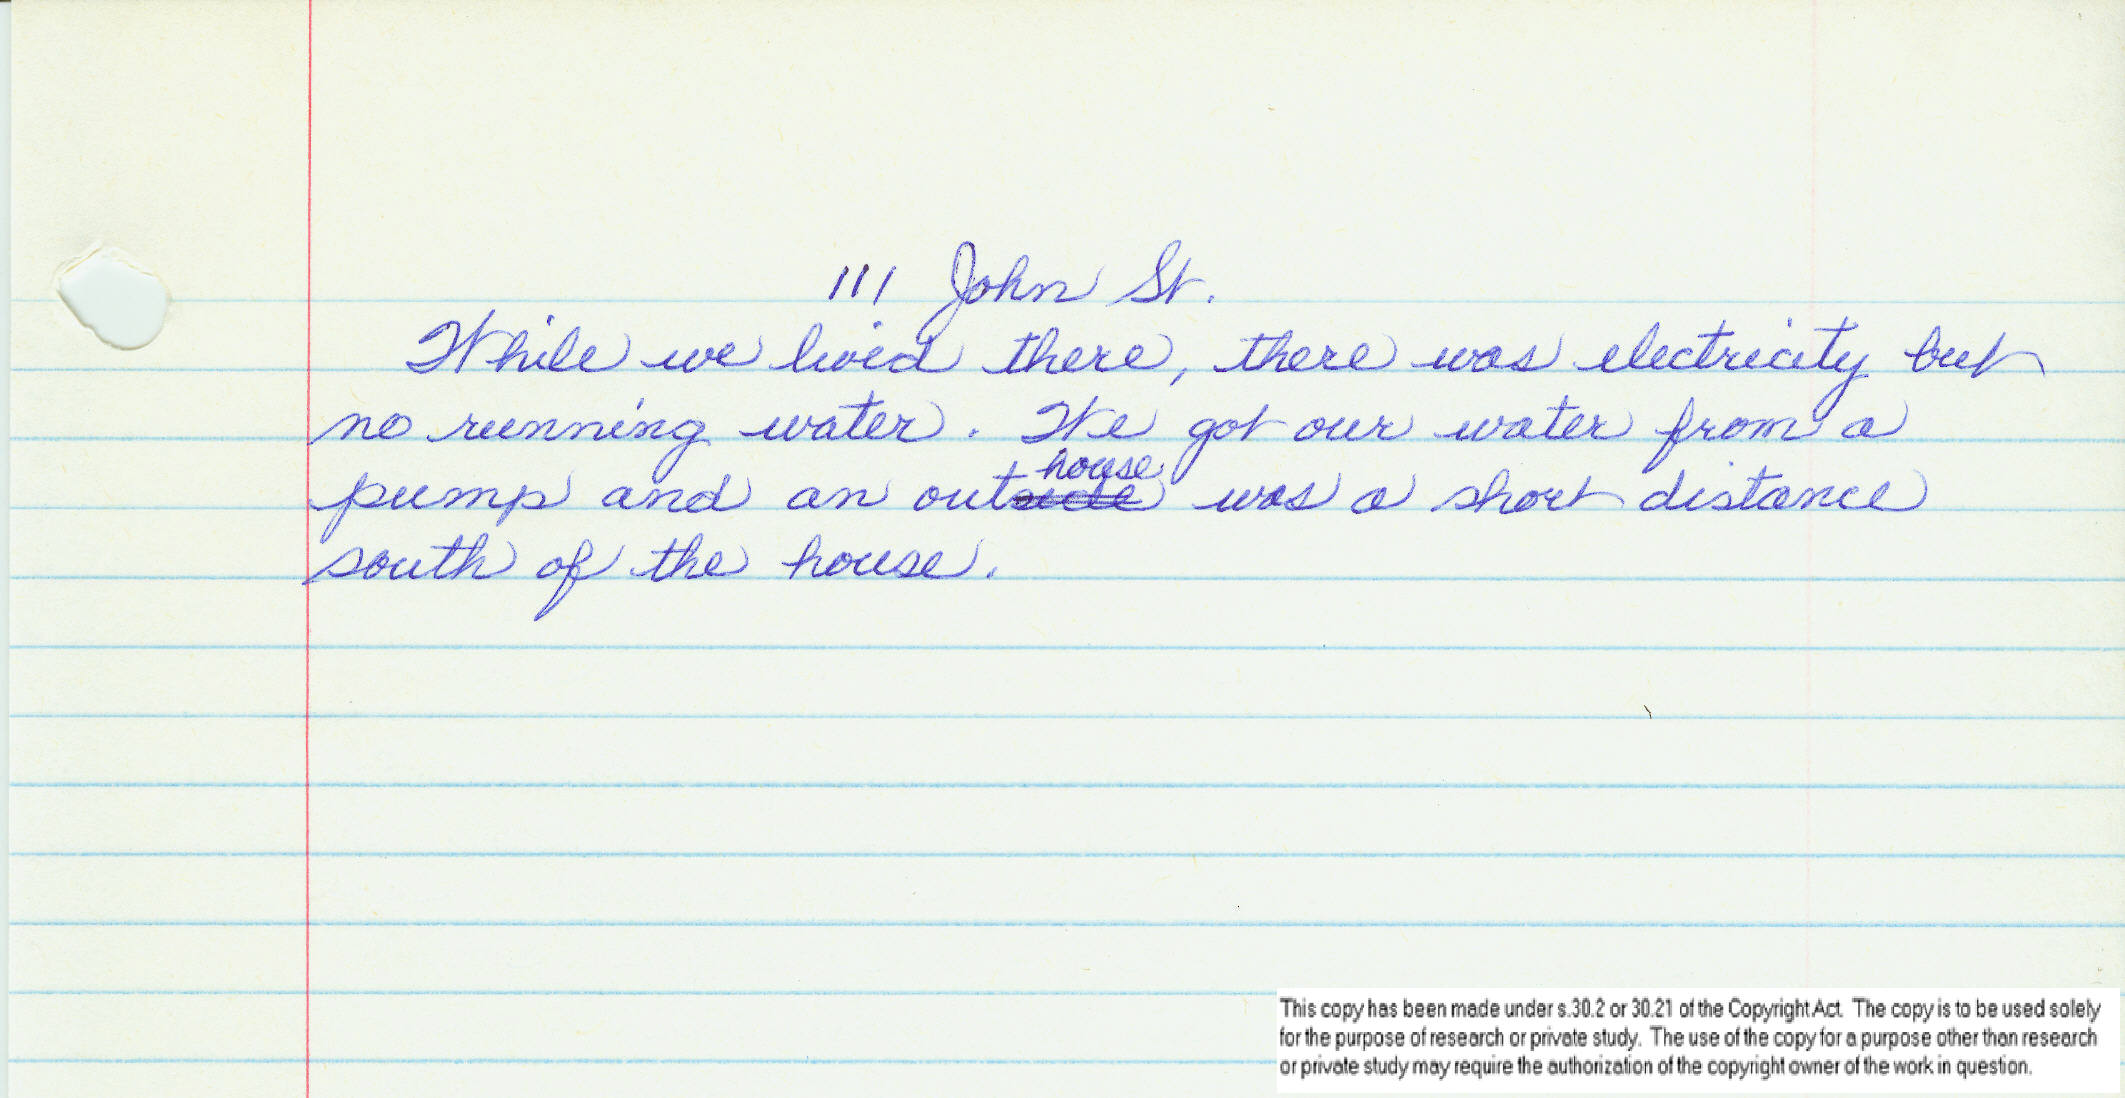 111 John St.
While we lived there, there was electricity but
no running water. We got our water from a
house
pump and an outside was a short distance
south of the house.
This copy has been made under s.30.2 or 30.21 of the Copyright Act. The copy is to be used solely
for the purpose of research or private study. The use of the copy for a purpose other than research
or private study may require the authorization of the copyright owner of the work in question.